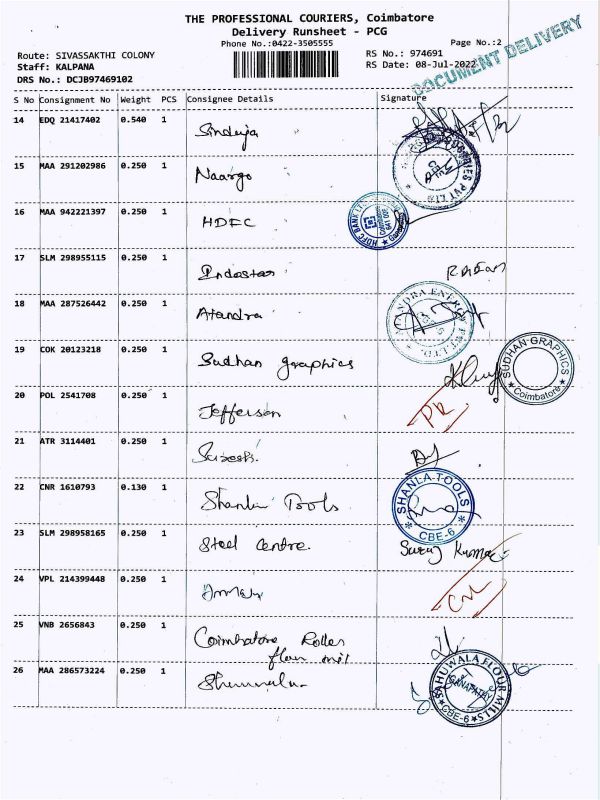 THE PROFESSIONAL COURIERS, Coimbatore
Delivery Runsheet - PCG
Phone No.:0422-3505555
Page No.:2
Route: SIVASSAKTHI COLONY
RS No.: 974691
Staff: KALPANA
RS Date: 08-Jul-2022
DRS No.: DCJB97469102
DOCUMENT DELIVERY
S No Consignment No Weight PCS Consignee Details Signature
14 EDQ 21417402 0.540 1 Sinduja
15 MAA 291202986 0.250 1 Naargo
16 MAA 942221397 0.250 1 HDFC
HDFC BANK LT
17 SLM 298955115 0.250 1 Indostar
18 MAA 287526442 0.250 1 Atandra
19 COK 20123218 0.250 1 Sudhan graphics
SUDHAN GRAPHICS
Coimbatore
20 POL 2541708 0.250 1 Jefferson
21 ATR 3114401 0.250 1
22 CNR 1610793 0.130 1 Shanla Tools
SHANLA TOOLS
CBE-6
23 SLM 298958165 0.250 1 Steel Centre. Suraj Kumar
24 VPL 214399448 0.250 1
25 VNB 2656843 0.250 1 Coimbatore Roller
flour mil
26 MAA 286573224 0.250 1
SAHUWALA FLOUR MILLS
GANAPATHY
CBE-6